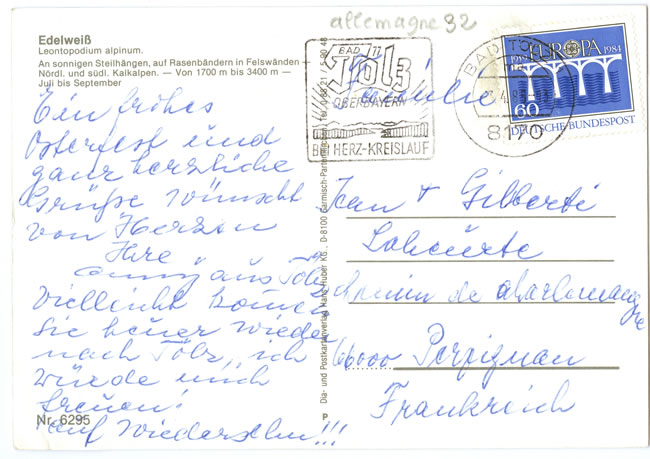 allemagne 32
Edelweiß
Leontopodium alpinum.
An sonnigen Steilhängen, auf Rasenbändern in Felswänden –
Nördl. und südl. Kalkalpen. — Von 1700 m bis 3400 m —
Juli bis September
Ein frohes
Osterfest und
ganz herzliche
Grüße wünscht
von Herzen
Ihre
aus Tölz
Vielleicht kommen
Sie heuer wieder
nach Tölz, ich
würde mich
freuen!
auf Wiedersehn!!!
Nr. 6295
Dia- und Postkartenverlag Hans Huber KG., D-8100 Garmisch-Partenkirchen
P
BAD
Tölz
OBERBAYERN
BEI HERZ-KREISLAUF
BAD TÖLZ
8170
EUROPA
1984
60
DEUTSCHE BUNDESPOST
Familie
Jean + Gilberte
chemin de
66000 Perpignan
Frankreich